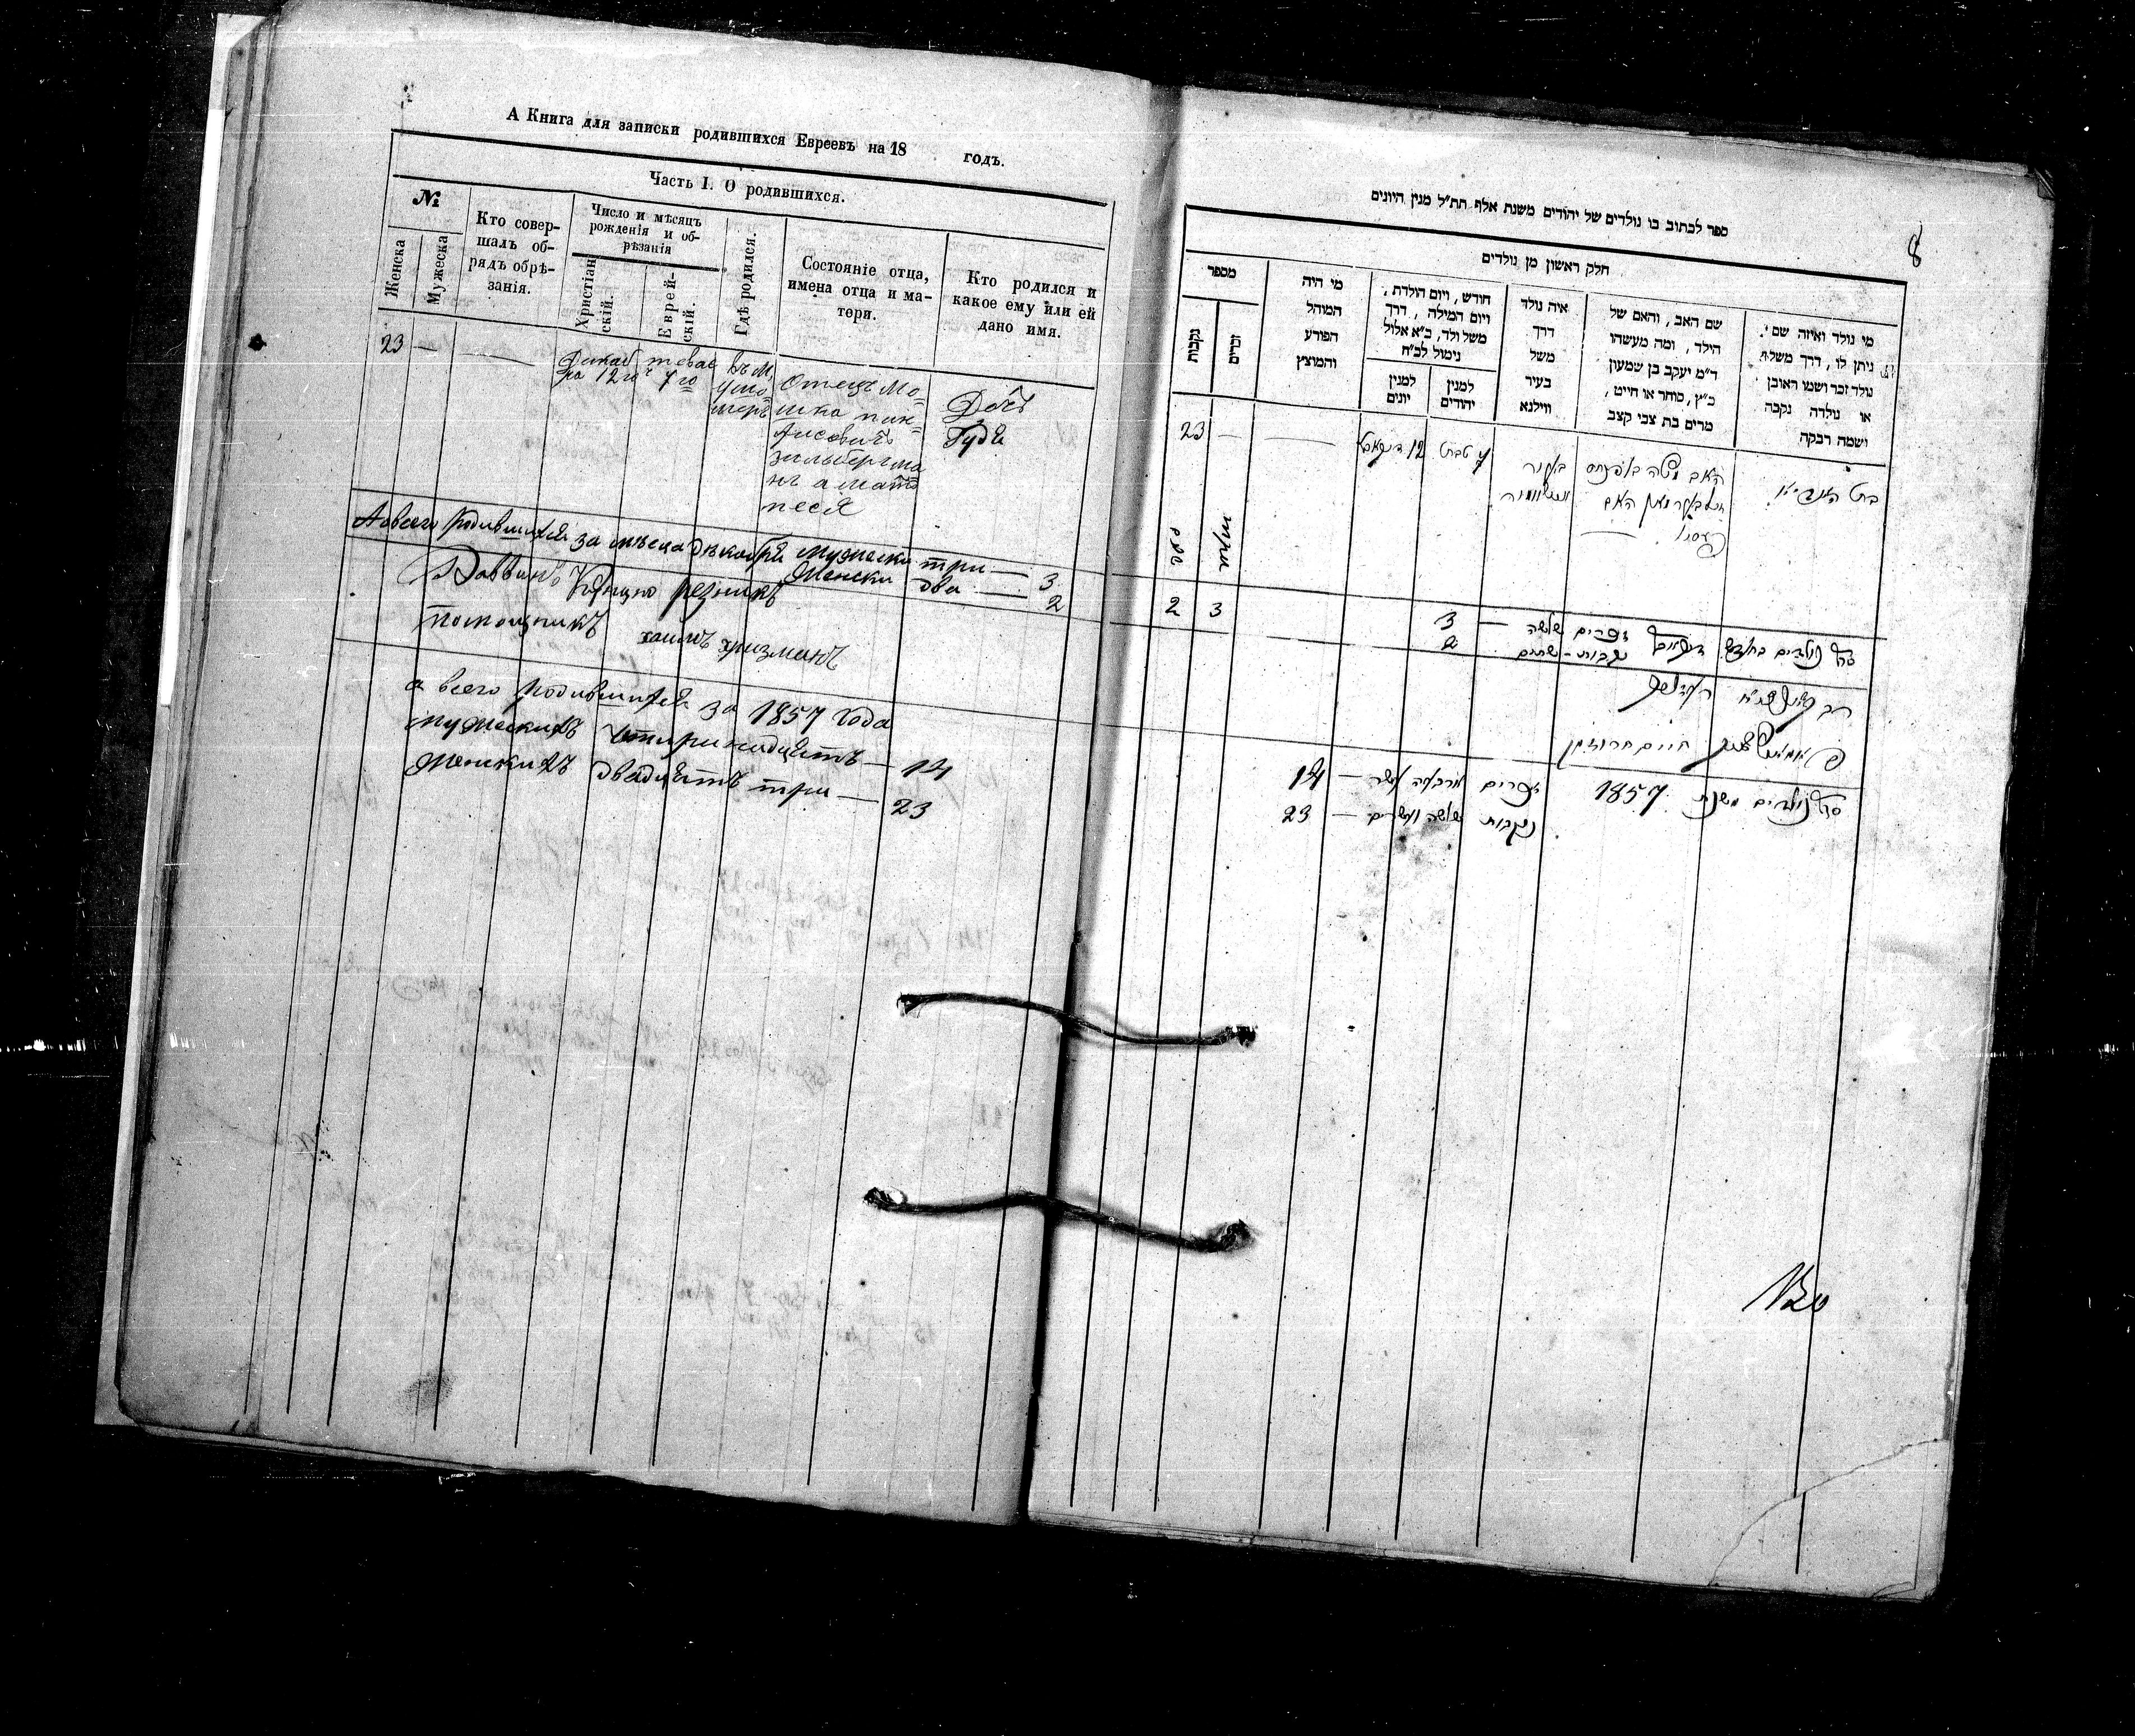 А Книга для записки родившихся Евреевъ на 18 годъ.
Часть I. О родившихся.
№
Женска
Мужеска
Кто совер-
шалъ об-
рядъ обрѣ-
занія.
Число и мѣсяцъ
рожденія и об-
рѣзанія
Христіан
скій.
Еврей-
скій.
Гдѣ родился.
Состояніе отца,
имена отца и ма-
тери.
Кто родился и
какое ему или ей
дано имя.
23 —
Декаб
ря 12го
тевас
7го
въ М,
Отецъ Мо=
шка пин=
хасовичъ
зильберма
нъ а мать
песя
Дочь
Гудя
А всего родившихся за месеца декабря мужески три — 3
Женски два — 2
Раввинъ резникъ
помощникъ хаимъ
а всего родившихся за 1857 года
мужескихъ четиринадцеть — 14
Женскихъ двадцеть три — 23
8
ספר לכתוב בו נולדים של יהודים משנת אלף תת״ל מנין היונים
חלק ראשון מן נולדים
מספר
נקבות
זכרים
מי היה
המוהל
הפורע
והמוצץ
חודש, ויום הולדת,
ויום המילה, דרך
משל ולד, כ״א אלול
נימול לכ״ח
למנין
יונים
למנין
יהודים
איה נולד
דרך
משל
בעיר
ווילנא
שם האב, והאם של
הילד, ומה מעשהו
ד״מ יעקב בן שמעון
כ״ץ, סוחר או חייט,
מרים בת צבי קצב
מי נולד ואיזה שם
ניתן לו, דרך משל
נולד זכר ושמו ראובן
או נולדה נקבה
ושמה רבקה
23 —
12
טבת
האב משה
האם
בת
2 3
סך נולדים בחודש זכרים שלשה — 3
נקבות - שתים 2
חיים
סך נולדים משנת 1857 זכרים ארבעה עשר — 14
נקבות שלשה ועשרים — 23